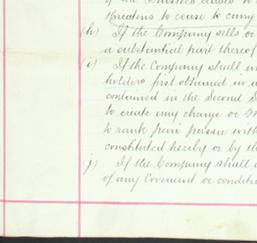 of the Business ceases to
threatens to cease to carry
(h) If the Company sells or
a substantial part thereof
(i) If the Company shall
holders first obtained in
contained in the Second S
to create any charge or M
to rank pari passu with
constituted hereby or by th
(j) If the Company shall
of any Covenant or condit